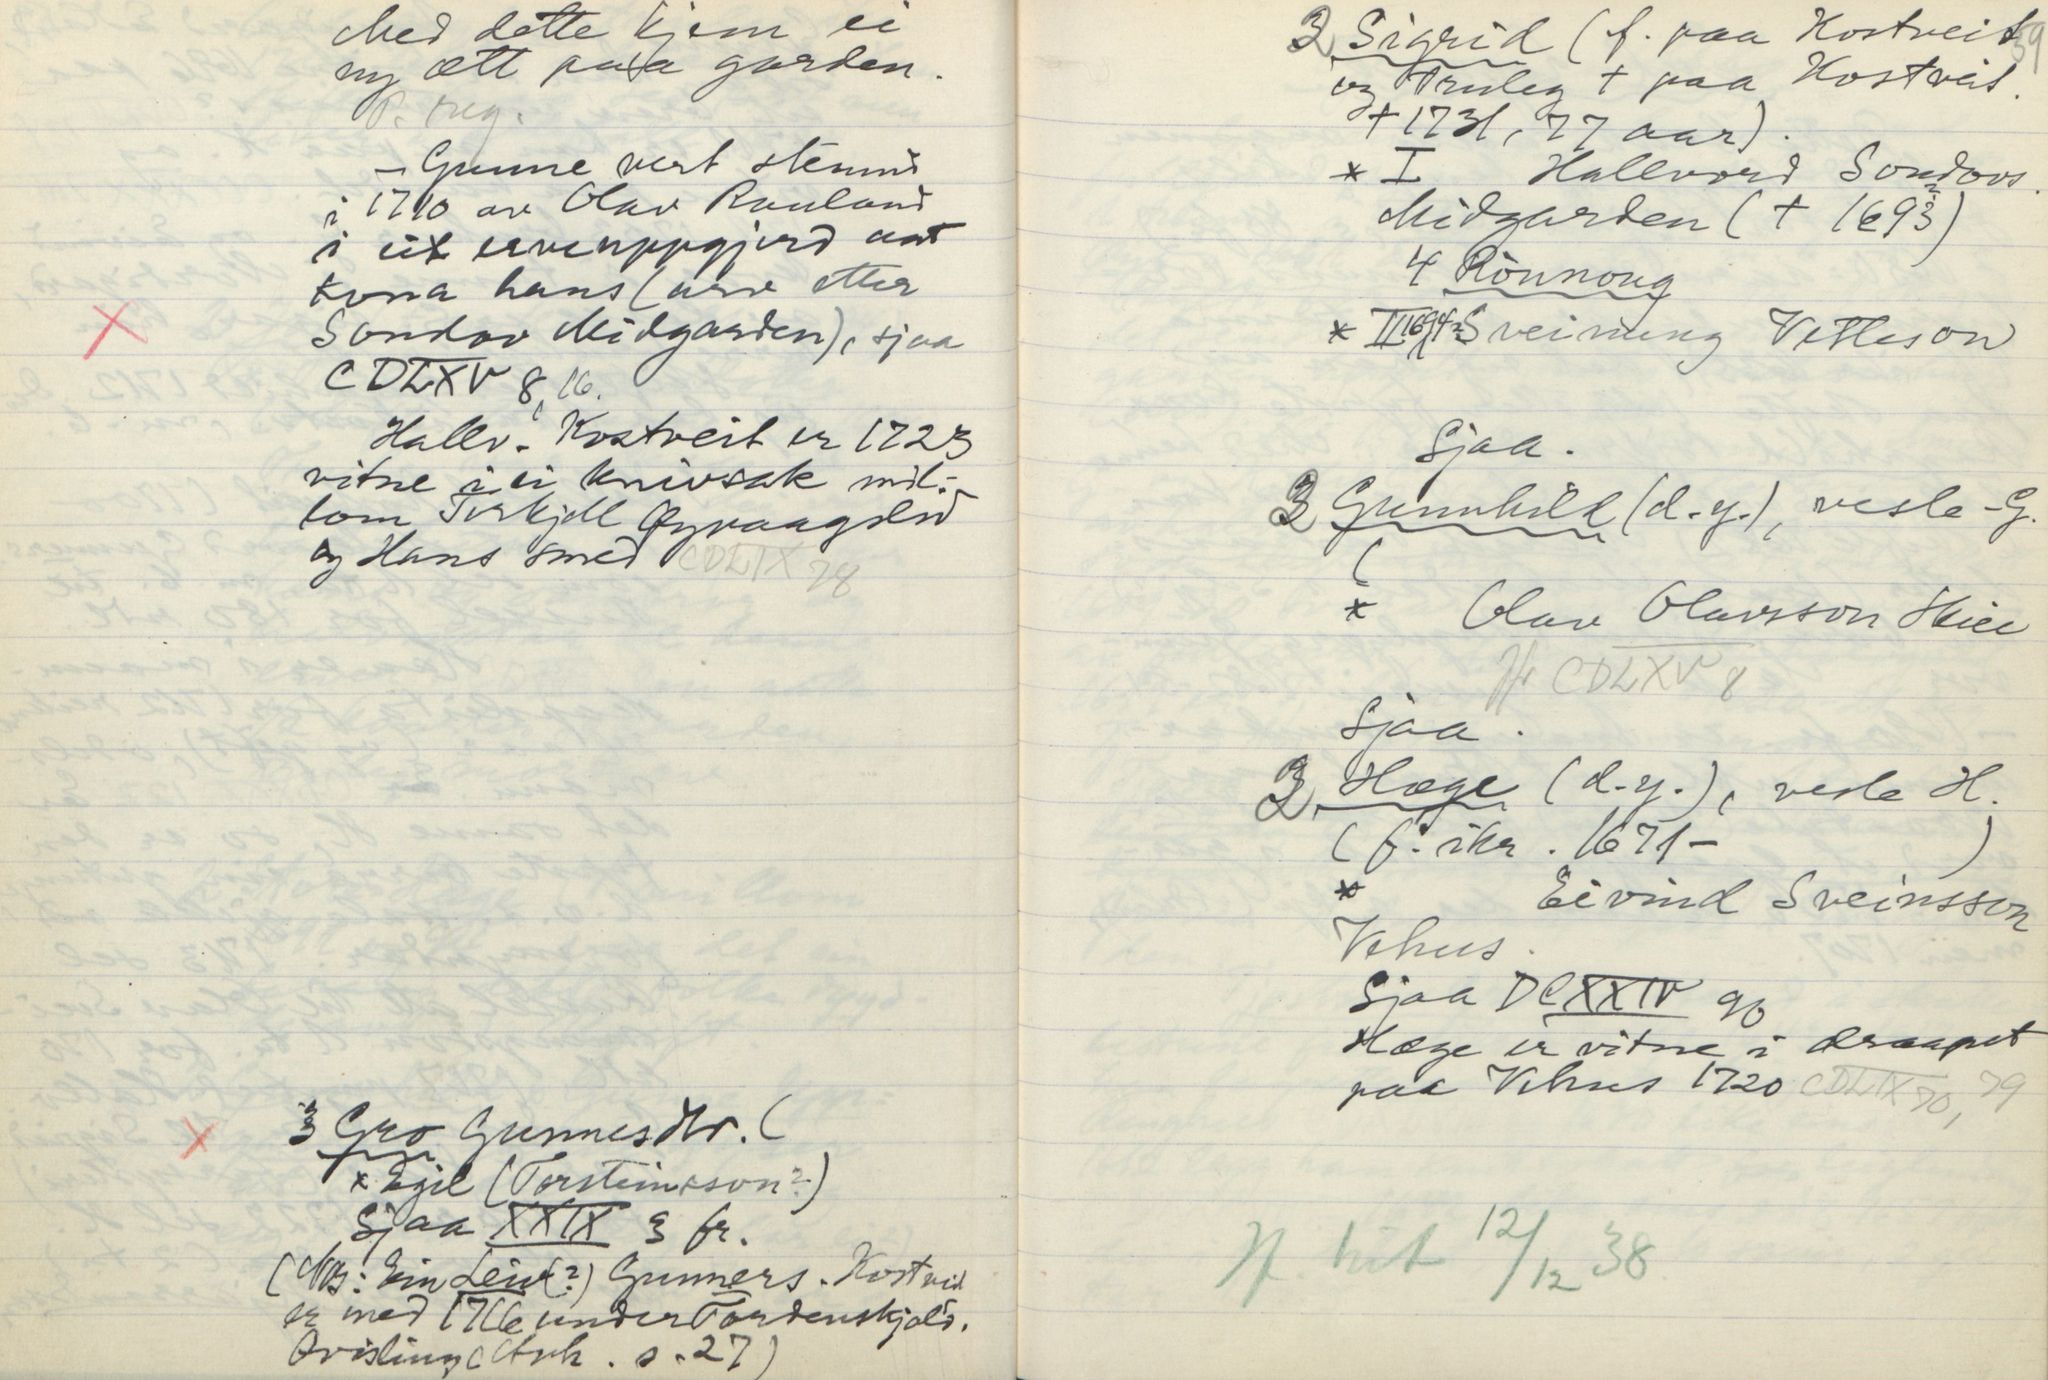 Med dette kjem ei
ny ætt paa garden.
P. reg.
- Gunne vert stemnd
i 1710 av Olav Rauland
i eit ervenppgjerd aat
kona hans (arv etter
Sondov Midgarden), sjaa
CDLXV 8, 16.
Hallv. Kostveit er 1723
vitne i ei knivsak mil-
lom Torkjell Øyvaagslid
og Hans smed CDLIX 78
3 Gro Gunnesdtr. (
* Egil (Torsteinsson?)
Sjaa XXIX 3 fr.
(Nb: Ein Leiv(?) Gunners. Kostveit
er med 1716 under Tordenskjold.
Qvisling (Ark. s. 27)
39
3 Sigrid (f. paa Kostveit
og truleg + paa Kostveit.
+ 1731, 77 aar).
* I Hallvord Sondovs.
Midgarden (+ 1693?)
4 Rönnoug
* II 1694? Sveinung Vetleson
Sjaa.
3 Gunnhild (d.y.), vesle-G.
(
* Olav Olavsson
Jfr CDLXV 8
Sjaa.
3 Hæge (d.y.), vesle H.
(f. ikr. 1671- )
* Eivind Sveinsson
Vehus.
Sjaa DCXXIV 90
Hæge er vitne i draapet
paa Vehus 1720 CDLIX 70, 79
Jf. hit 12/12 38